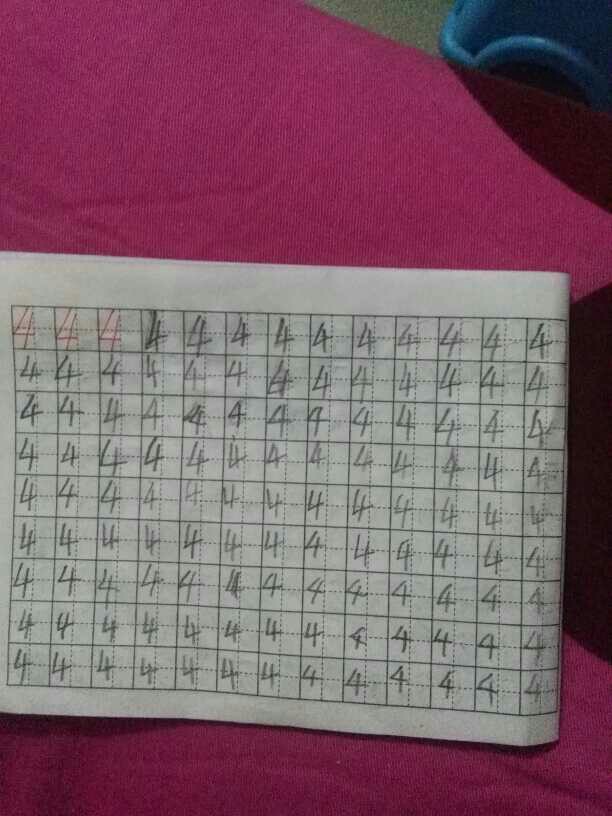 4 4 4 4 4 4 4 4 4 4 4 4 4
4 4 4 4 4 4 4 4 4 4 4 4 4
4 4 4 4 4 4 4 4 4 4 4 4 4
4 4 4 4 4 4 4 4 4 4 4 4 4
4 4 4 4 4 4 4 4 4 4 4 4 4
4 4 4 4 4 4 4 4 4 4 4 4 4
4 4 4 4 4 4 4 4 4 4 4 4 4
4 4 4 4 4 4 4 4 4 4 4 4 4
4 4 4 4 4 4 4 4 4 4 4 4 4